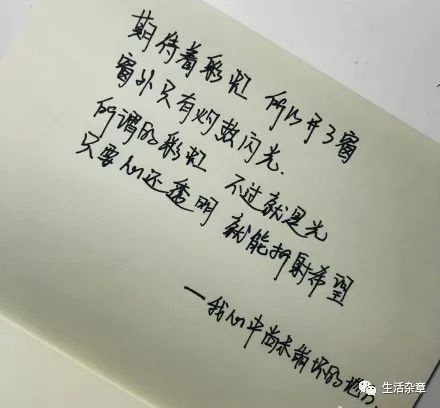 期待着彩虹 所以开了窗
窗外只有灼热闪光.
所谓的彩虹 不过就是光
只要心还透明 就能折射希望
—我心中尚未崩坏的地方
生活杂章